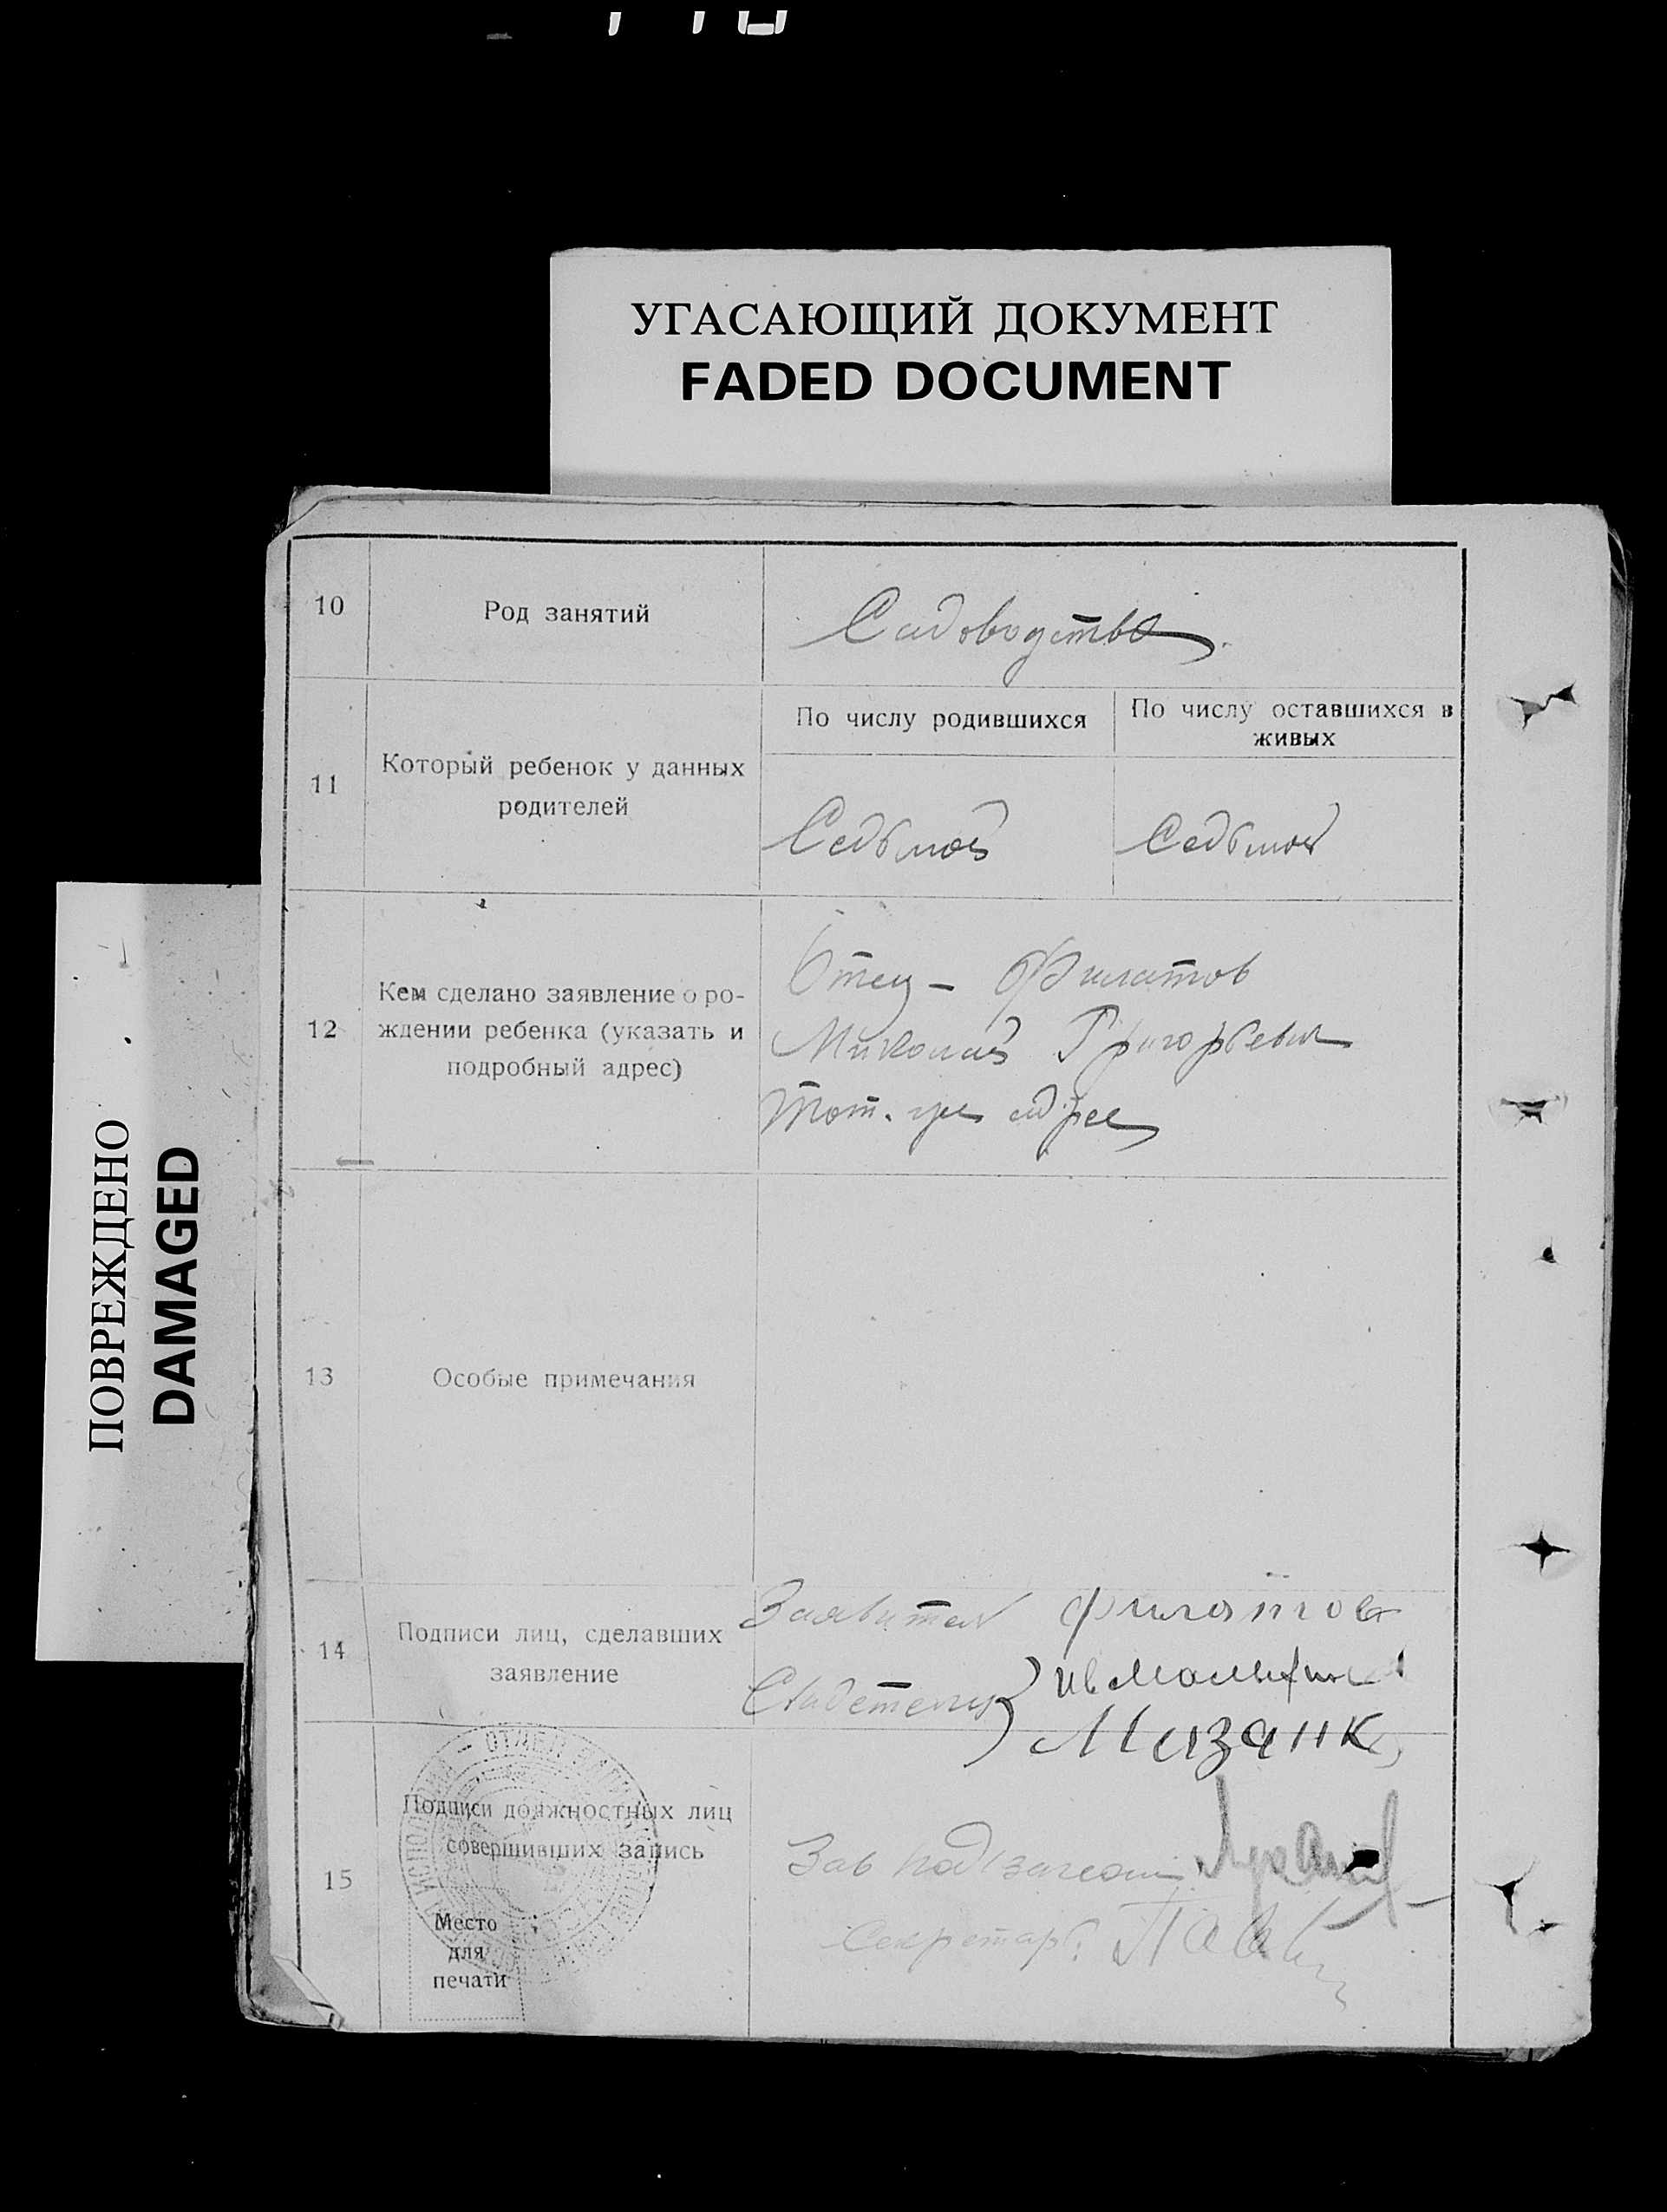 УГАСАЮЩИЙ ДОКУМЕНТ
FADED DOCUMENT
ПОВРЕЖДЕНО
DAMAGED
10
Род занятий
Садоводство.
11
Который ребенок у данных
родителей
По числу родившихся
По числу оставшихся в
живых
Седьмой
Седьмой
12
Кем сделано заявление о ро-
ждении ребенка (указать и
подробный адрес)
Отец – Филатов
Николай Григорьевич
Тот. же адрес
13
Особые примечания
14
Подписи лиц, сделавших
заявление
Заявитель Филатов
Свидетели
15
Подписи должностных лиц
совершивших запись
Место
для
печати
ОТДЕЛ
Зав
Секретарь: